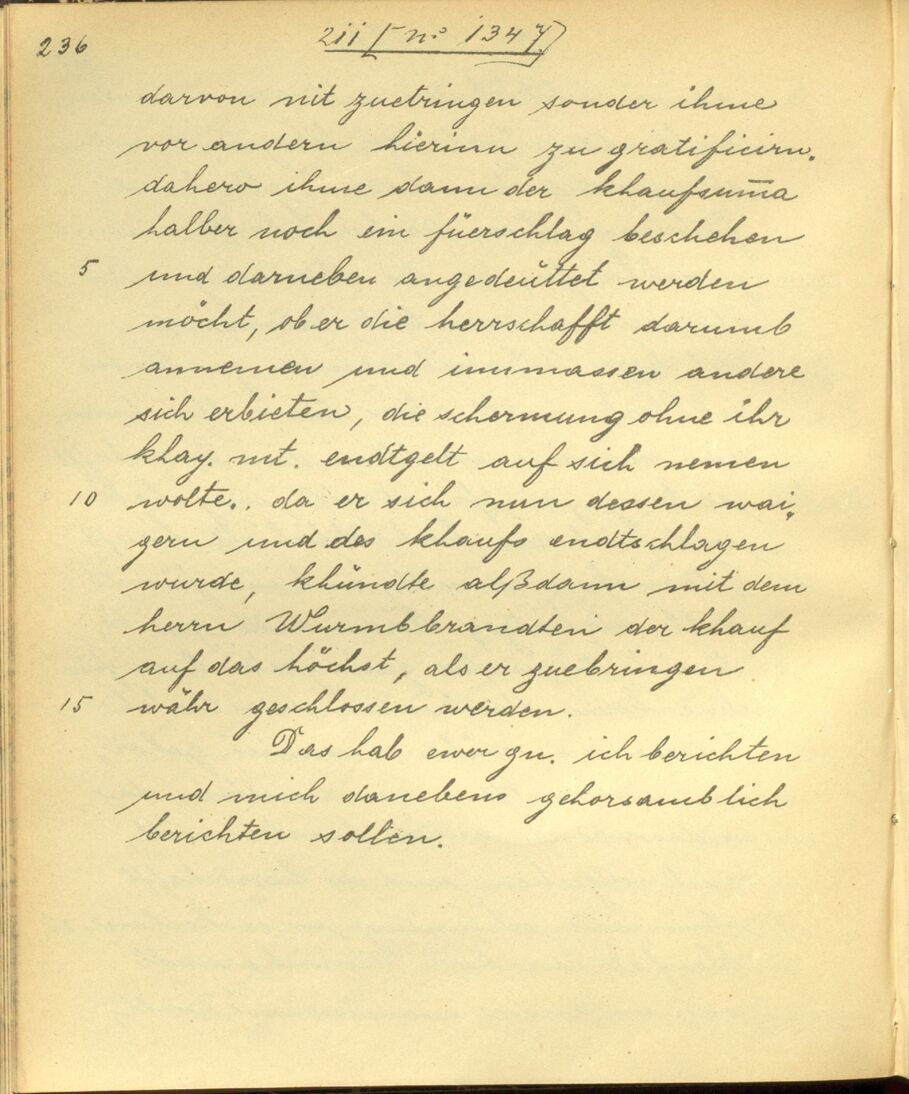 236
211 [nᵒ 1347]
darvon nit zuetringen sonder ihme
vor andern hierinn zu gratificirn.
dahero ihme dann der khaufsum̅a
halber noch ein füerschlag beschehen
5 und darneben angedeüttet werden
möcht, ob er die herrschafft darumb
annemen und innmassen andere
sich erbieten, die schermung ohne ihr
khay. mt. endtgelt auf sich nemen
10 wolte.. da er sich nun dessen wai„
gern und des khaufs endtschlagen
wurde, khündte alßdann mit dem
herrn Wurmbbrandten der khauf
auf das höchst, als er zuebringen
15 währ geschlossen werden.
Das hab ewer gn. ich berichten
und mich danebens gehorsamblich
berichten sollen.